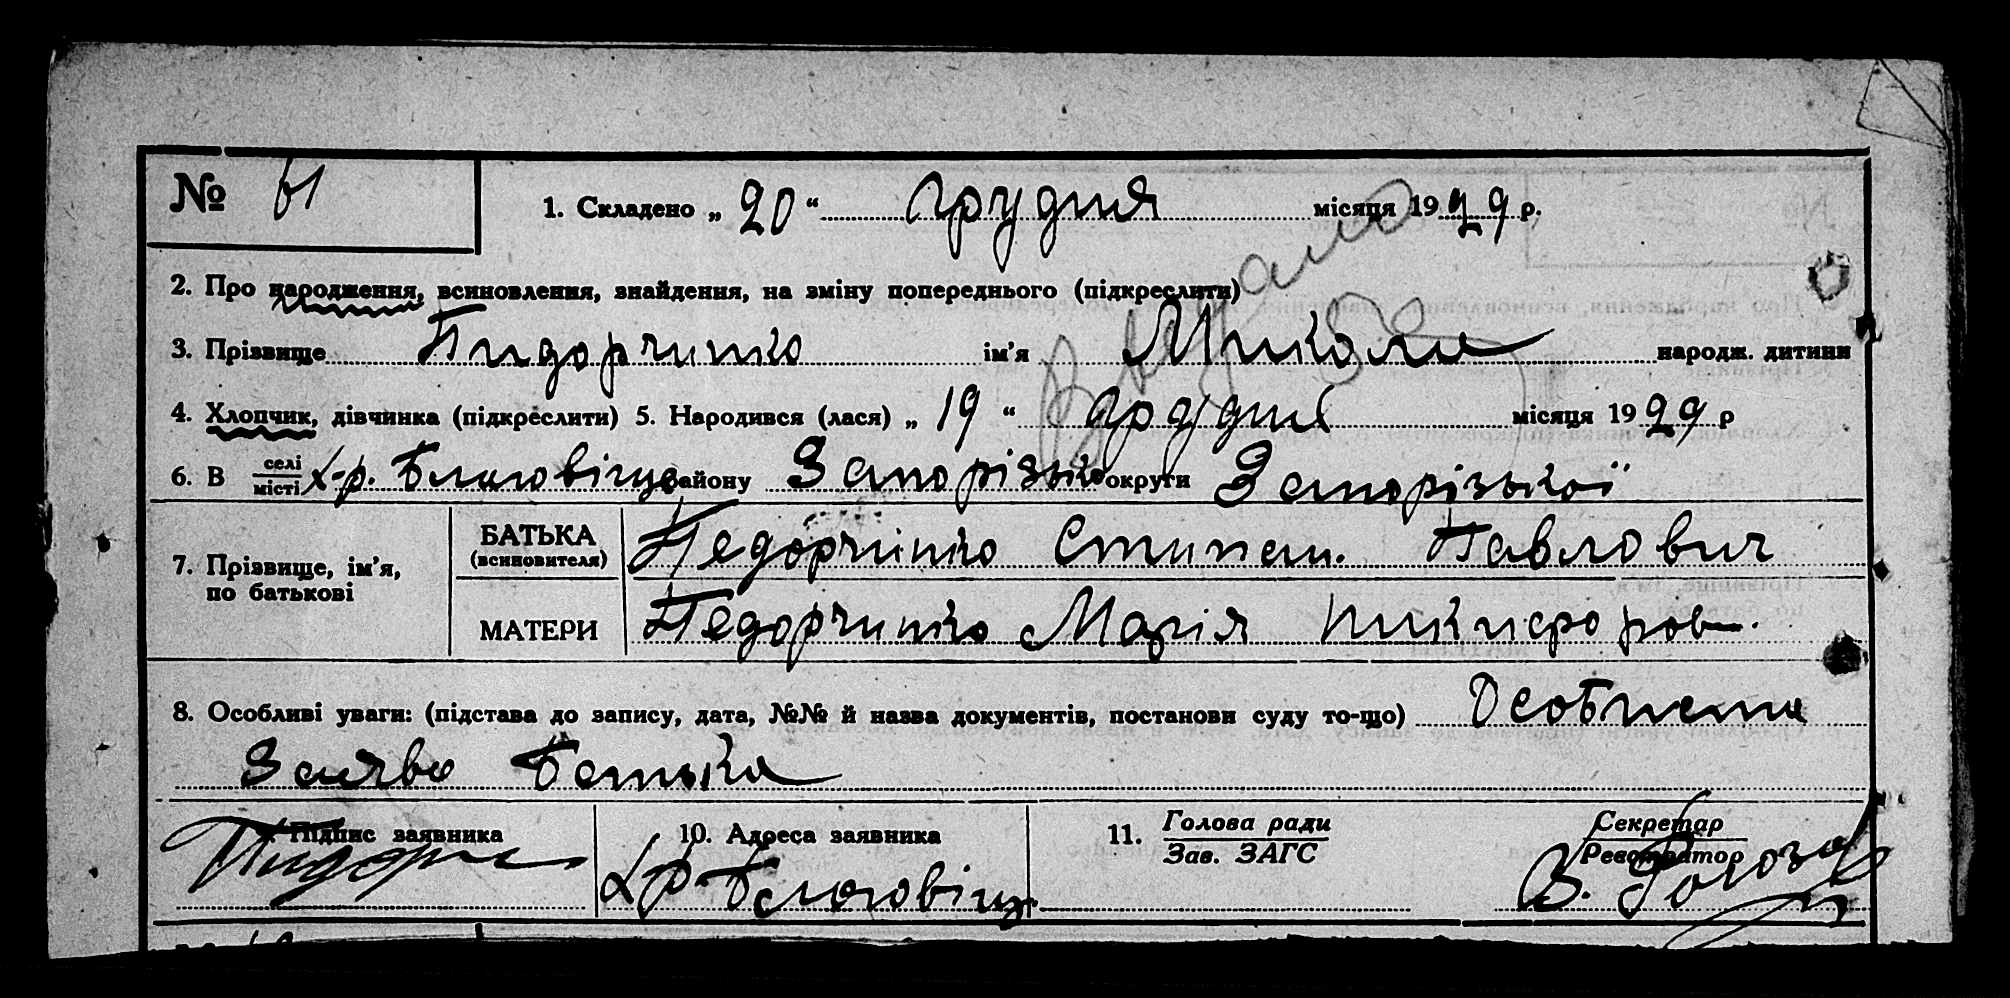 № 61 1. Складено „ 20 “ грудня місяця 1929 р.
2. Про народження, всиновлення, знайдення, на зміну попереднього (підкреслити)
3. Прізвище Пидорчинко ім’я Микола народж. дитини
4. Хлопчик, дівчинка (підкреслити) 5. Народився (лася) „ 19 “ грудня місяця 1929 р
6. В селі місті х-р. Благовіще району Запорізько округи Запорізької
7. Прізвище, ім’я, по батькові
БАТЬКА (всиновителя) Педорчинко Степан. Павлович
МАТЕРИ Педорчинко Марія Никифоров.
8. Особливі уваги: (підстава до запису, дата, №№ й назва документів, постанови суду то-що) Особиста
Заява Батька
Підпис заявника 10. Адреса заявника 11. Голова ради Зав. ЗАГС Секретар Реєстратор
Пидорч хр Благовіщ. В. Рогоза